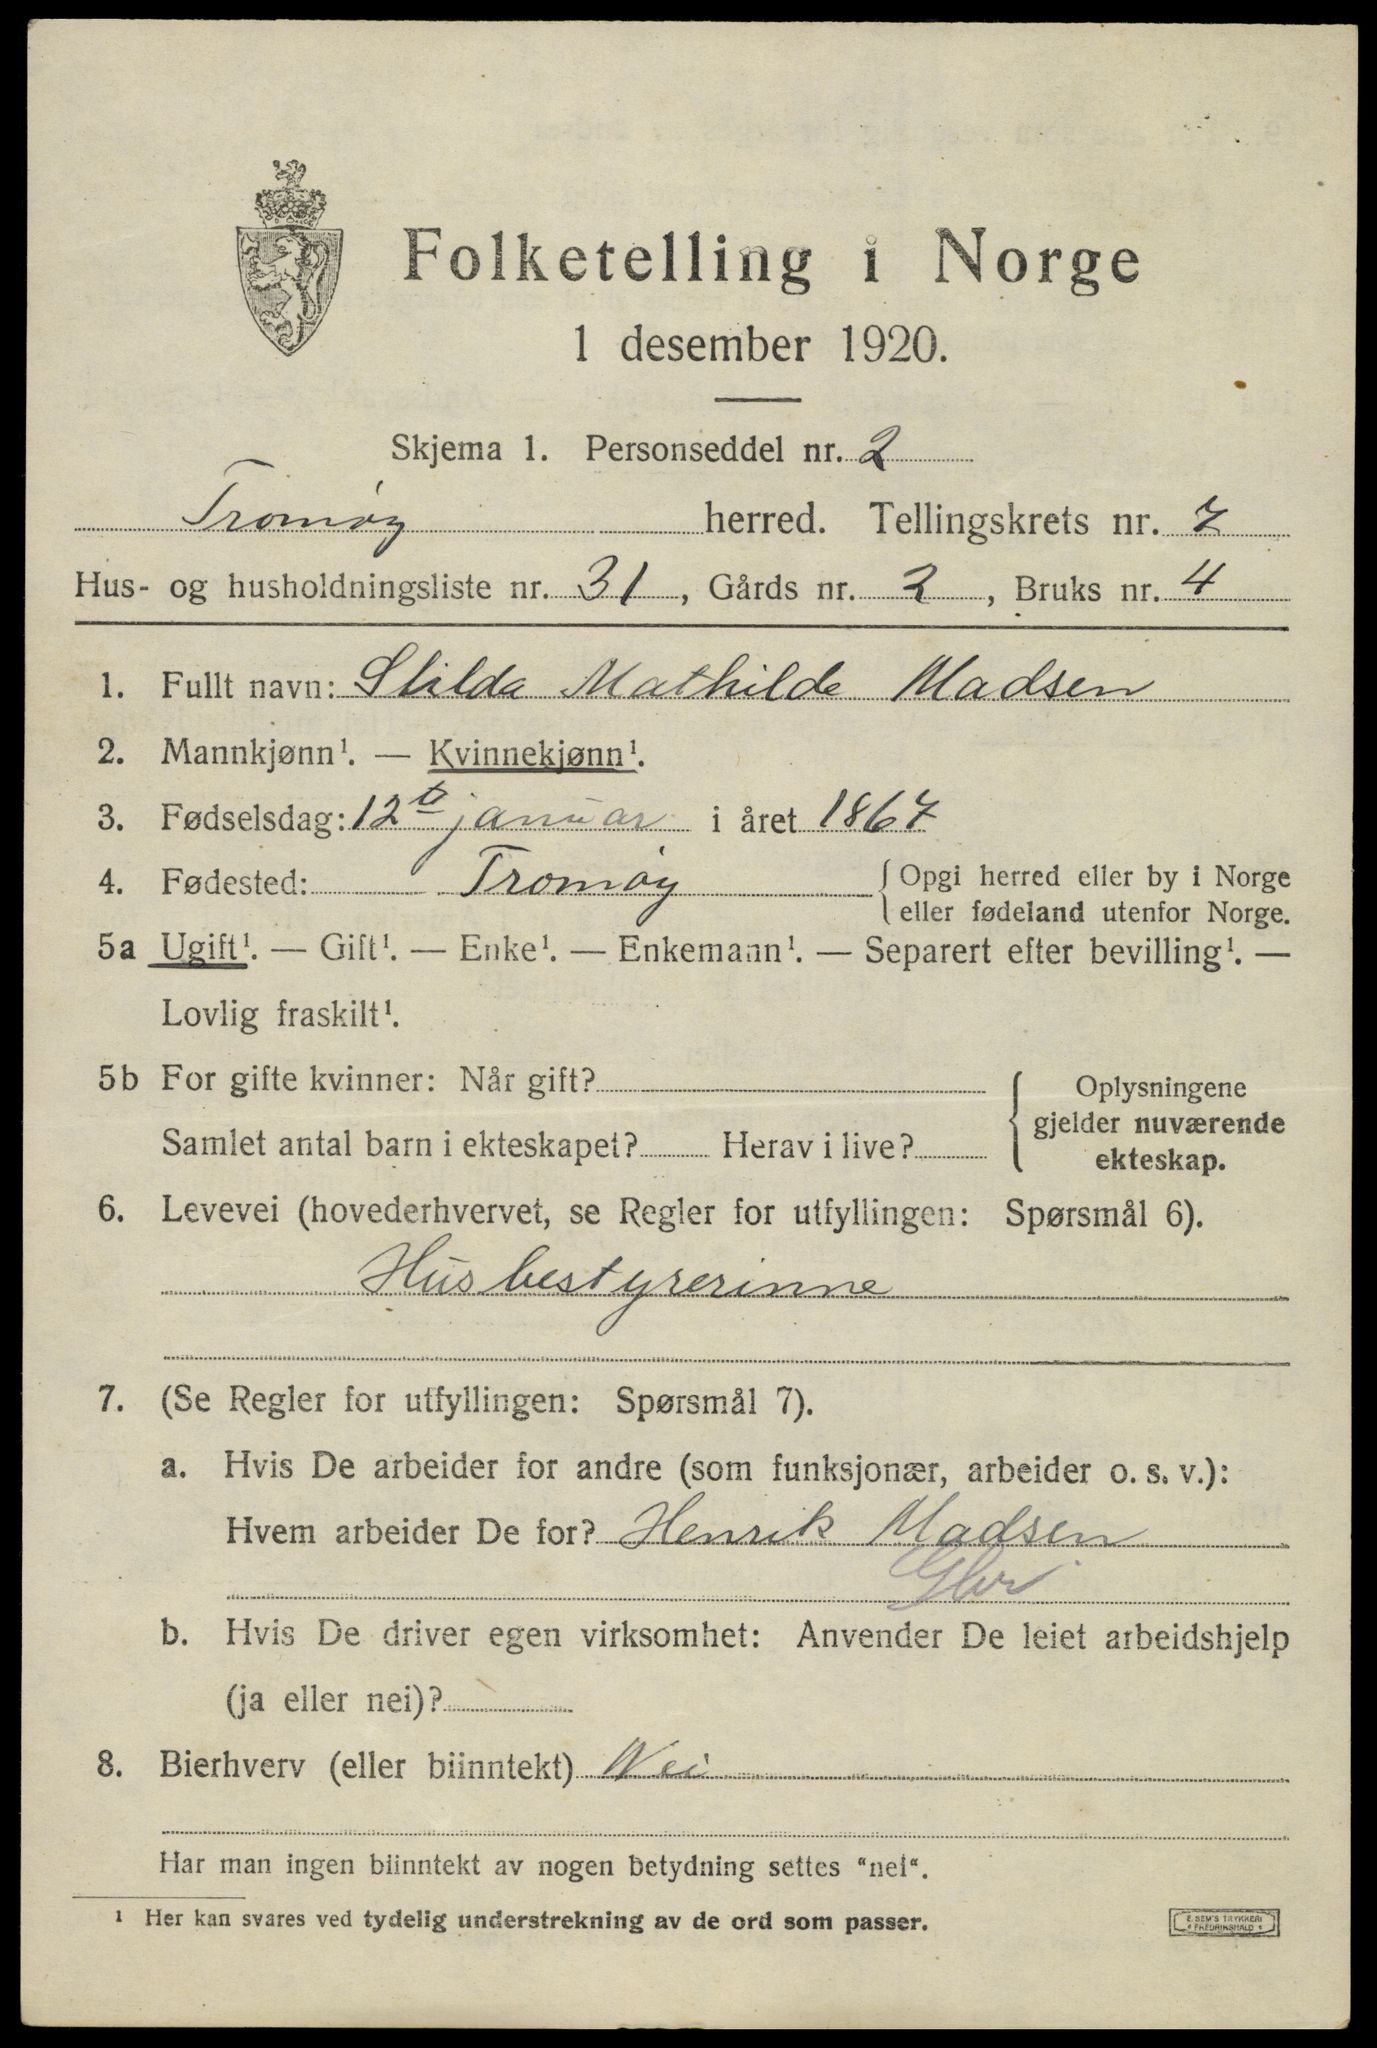 Folketelling i Norge
1 desember 1920.
Skjema 1. Personseddel nr. 2
Tromøy herred. Tellingskrets nr. 7
Hus- og husholdningsliste nr. 31, Gårds nr. 2, Bruks nr. 4
1. Fullt navn: Mathilde Madsen
2. Mannkjønn¹. — Kvinnekjønn¹.
3. Fødselsdag: 12te januar i året 1867
4. Fødested: Tromøy { Opgi herred eller by i Norge
eller fødeland utenfor Norge.
5a Ugift¹. — Gift¹. — Enke¹. — Enkemann¹. — Separert efter bevilling¹. —
Lovlig fraskilt¹.
5b For gifte kvinner: Når gift?
Samlet antal barn i ekteskapet? Herav i live?
{ Oplysningene
gjelder nuværende
ekteskap.
6. Levevei (hovederhvervet, se Regler for utfyllingen: Spørsmål 6).
Husbestyrerinne
7. (Se Regler for utfyllingen: Spørsmål 7).
a. Hvis De arbeider for andre (som funksjonær, arbeider o. s. v.):
Hvem arbeider De for? Henrik Madsen
b. Hvis De driver egen virksomhet: Anvender De leiet arbeidshjelp
(ja eller nei)?
8. Bierhverv (eller biinntekt) Nei
Har man ingen biinntekt av nogen betydning settes "nei".
¹ Her kan svares ved tydelig understrekning av de ord som passer.
E. SEM'S TRYKKERI
FREDRIKSHALD